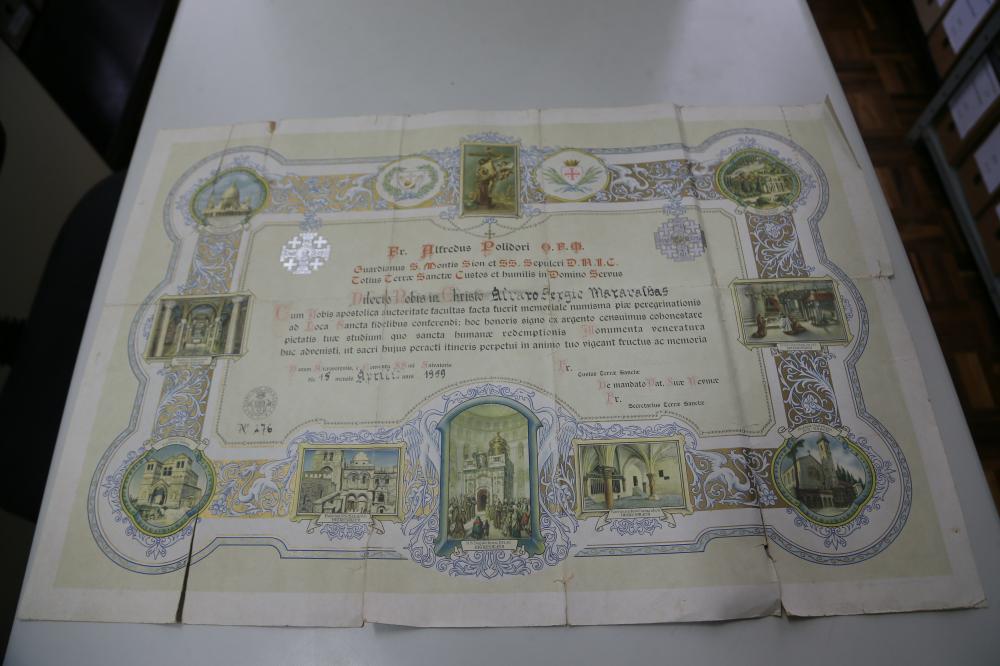 Fr. Alfredus Polidori O. F. M.
Guardianus S. Montis Sion et SS. Sepulcri D. N. I. C.
Totius Terræ Sanctæ Custos et humilis in Domino Servus
Dilecto Nobis in Christo Alvaro Sergio
Cum Nobis apostolica auctoritate facultas facta fuerit memoriale numisma piæ peregrinationis
ad Loca Sancta fidelibus conferendi; hoc honoris signo ex argento censuimus cohonestare
pietatis tuæ studium quo sancta humanæ redemptionis Monumenta veneratura
huc advenisti, ut sacri hujus peracti itineris perpetui in animo tuo vigeant fructus ac memoria
Datum Hierosolymis, e Conventu SSmi Salvatoris
die 15 mensis Aprilis anni 1959
Fr.
Custos Terræ Sanctæ
De mandato Pat. Suæ Revmæ
Fr.
Secretarius Terræ Sanctæ
Nº 276